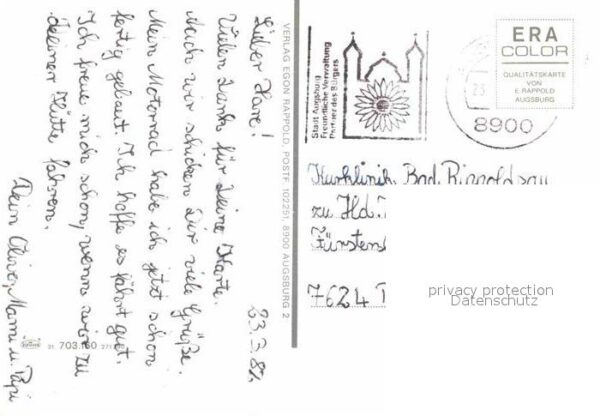 23.3.82
Lieber Uwe!
Vielen Dank für Deine Karte.
Auch wir schicken Dir viele Grüße.
Mein Motorrad habe ich jetzt schon
fertig gebaut. Ich hoffe es fährt gut.
Ich freue mich schon, wenn wir zu
deiner Hütte fahren.
Dein Oliver, Mami u. Papi
VERLAG EGON RAPPOLD, POSTF. 102251, 8900 AUGSBURG 2
21 703.160
Stadt Augsburg
Freundliche Verwaltung
Partner des Bürgers
23.
8900
ERA
COLOR
QUALITÄTSKARTE
VON
E. RAPPOLD
AUGSBURG
Kurklinik Bad Rippoldsau
zu Hd.
Fürsten
7624
privacy protection
Datenschutz